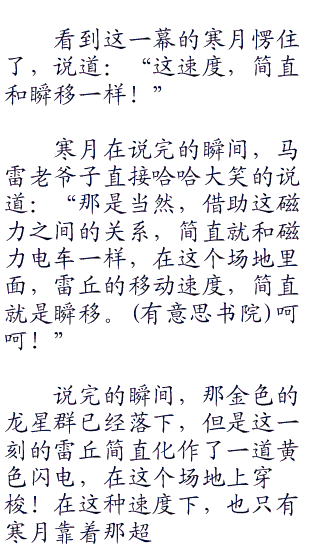 看到这一幕的寒月愣住
了，说道：“这速度，简直
和瞬移一样！”
寒月在说完的瞬间，马
雷老爷子直接哈哈大笑的说
道：“那是当然，借助这磁
力之间的关系，简直就和磁
力电车一样，在这个场地里
面，雷丘的移动速度，简直
就是瞬移。(有意思书院)呵
呵！”
说完的瞬间，那金色的
龙星群已经落下，但是这一
刻的雷丘简直化作了一道黄
色闪电，在这个场地上穿
梭！在这种速度下，也只有
寒月靠着那超